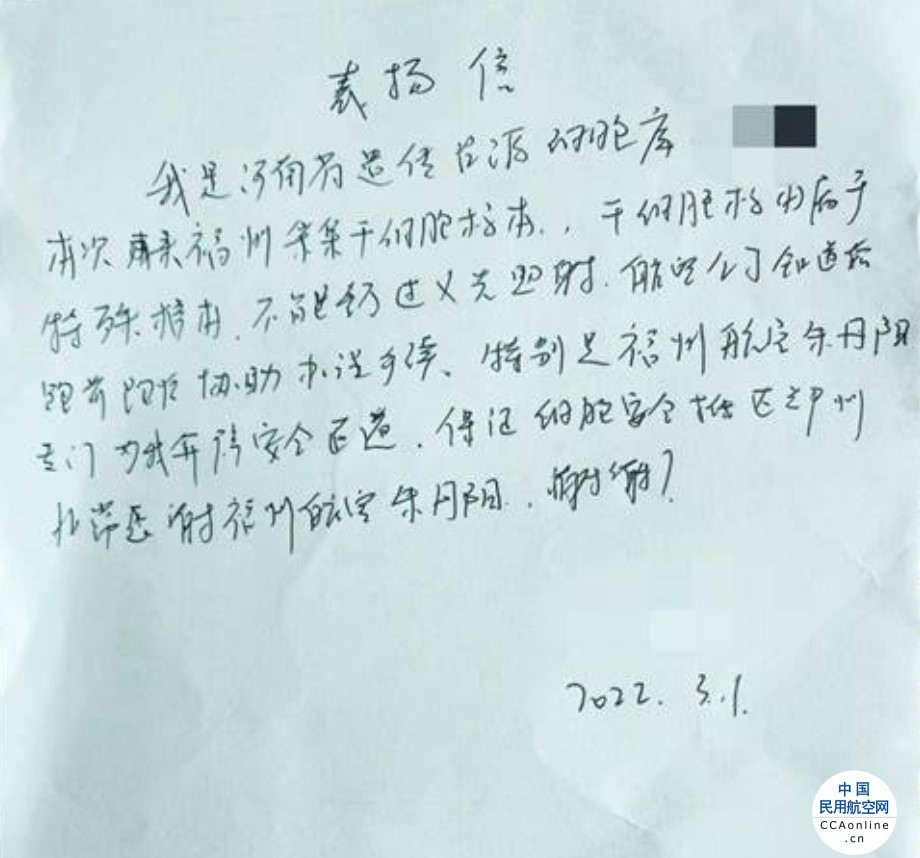 表扬信
我是河南省遗传资源细胞库
本次来福州采集干细胞标本，干细胞标本属于
特殊标本，不能经过X光照射，航空公司知道后
跑前跑后协助办证手续、特别是福州航空朱丹阳
专门为我开辟安全通道，保证细胞安全抵达郑州
非常感谢福州航空朱丹阳，谢谢！
2022.3.1.
中国
民用航空网
CCAonline
.cn